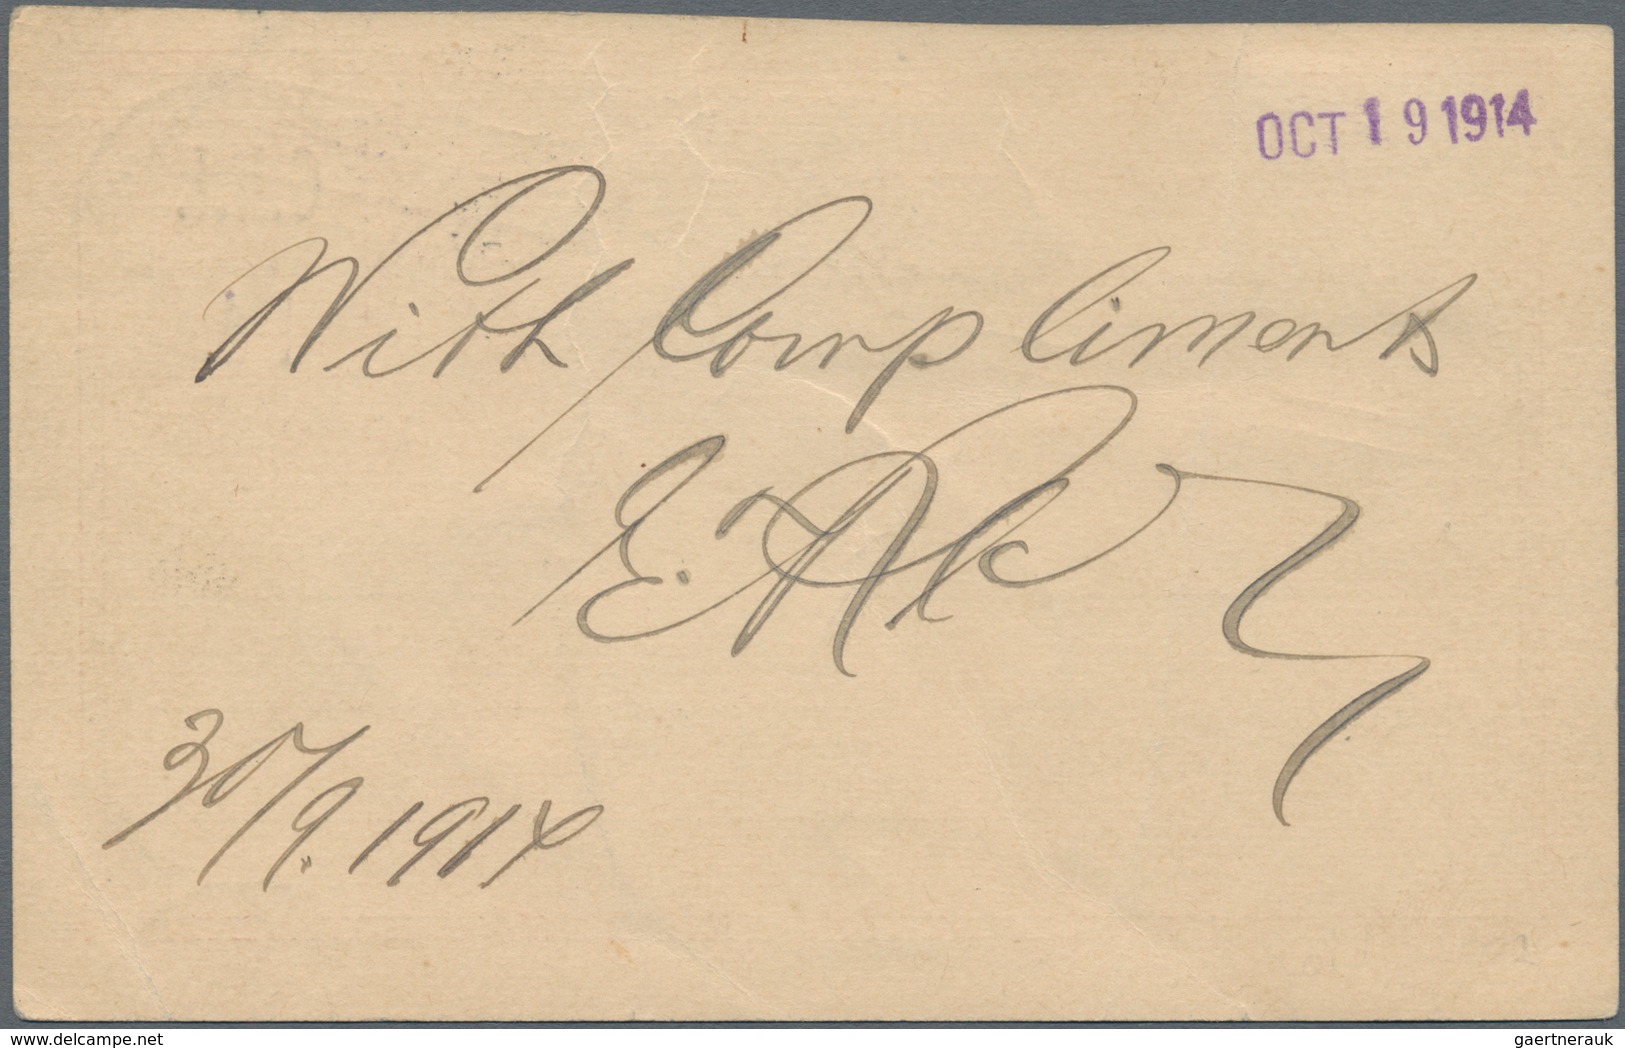 OCT 19 1914
With Compliments
E.
30/9. 1914
www.delcampe.net
gaertnerauk